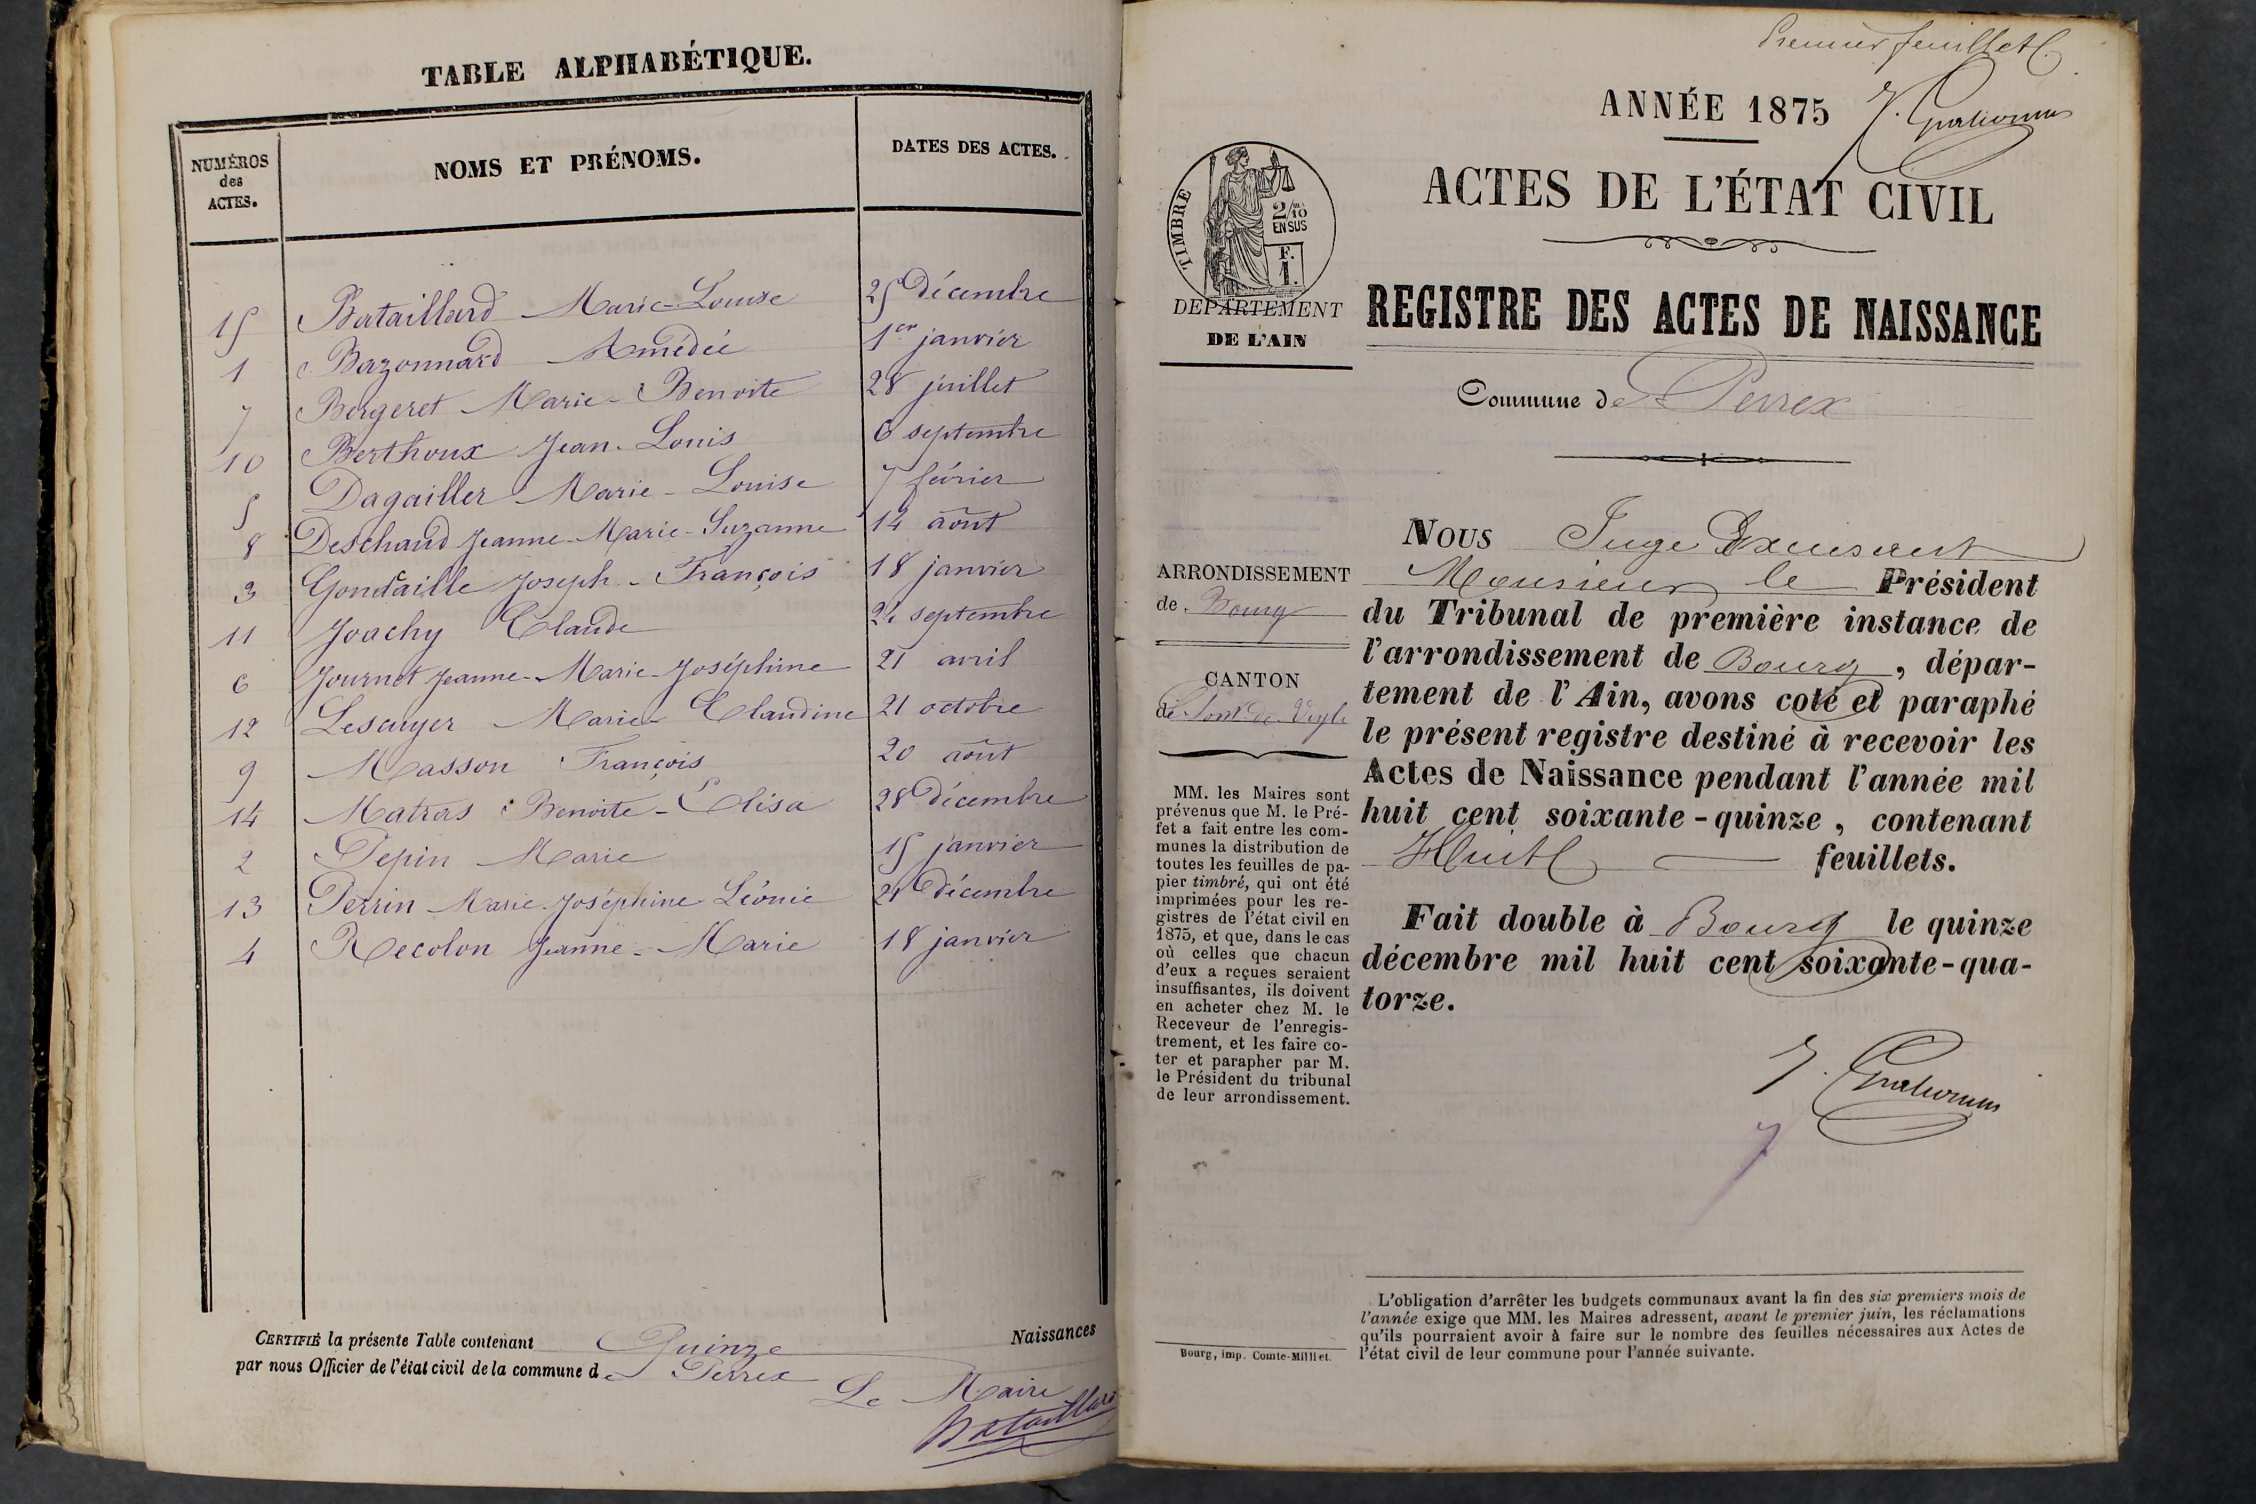 TABLE ALPHABÉTIQUE.
NUMÉROS des ACTES. NOMS ET PRÉNOMS. DATES DES ACTES.
15 Bataillard Marie-Louise 25 Décembre
1 Bazonnard Amédée 1er janvier
7 Bergeret Marie-Benoite 28 juillet
10 Berthoux Jean-Louis 6 septembre
5 Dagailler Marie-Louise 7 février
8 Deschaud Jeanne-Marie-Suzanne 12 août
3 Joseph-François 18 janvier
11 Joachy Claude septembre
6 Journet Jeanne-Marie-Joséphine 21 avril
12 Lescuyer Marie-Claudine 21 octobre
9 Masson François 20 août
14 Matras Benoite-Elisa 28 Décembre
2 Pepin Marie 15 janvier
13 Perrin Marie-Joséphine-Léonie 21 Décembre
4 Recolon Jeanne-Marie 18 janvier
CERTIFIÉ la présente Table contenant Quinze Naissances
par nous Officier de l'état civil de la commune de Perrex
Le Maire
Bataillard
Premier feuillet
ANNÉE 1875
ACTES DE L'ÉTAT CIVIL
TIMBRE
2/10 EN SUS
F. 1.
DEPARTEMENT
DE L'AIN
REGISTRE DES ACTES DE NAISSANCE
Commune de Perrex
ARRONDISSEMENT
de Bourg
CANTON
de Pont de Veyle
MM. les Maires sont
prévenus que M. le Pré-
fet a fait entre les com-
munes la distribution de
toutes les feuilles de pa-
pier timbré, qui ont été
imprimées pour les re-
gistres de l'état civil en
1875, et que, dans le cas
où celles que chacun
d'eux a reçues seraient
insuffisantes, ils doivent
en acheter chez M. le
Receveur de l'enregis-
trement, et les faire co-
ter et parapher par M.
le Président du tribunal
de leur arrondissement.
Bourg, imp. Comte-Milliet.
NOUS Juge
Monsieur le Président
du Tribunal de première instance de
l'arrondissement de Bourg, dépar-
tement de l'Ain, avons coté et paraphé
le présent registre destiné à recevoir les
Actes de Naissance pendant l'année mil
huit cent soixante-quinze, contenant
Huit feuillets.
Fait double à Bourg le quinze
décembre mil huit cent soixante-qua-
torze.
L'obligation d'arrêter les budgets communaux avant la fin des six premiers mois de
l'année exige que MM. les Maires adressent, avant le premier juin, les réclamations
qu'ils pourraient avoir à faire sur le nombre des feuilles nécessaires aux Actes de
l'état civil de leur commune pour l'année suivante.